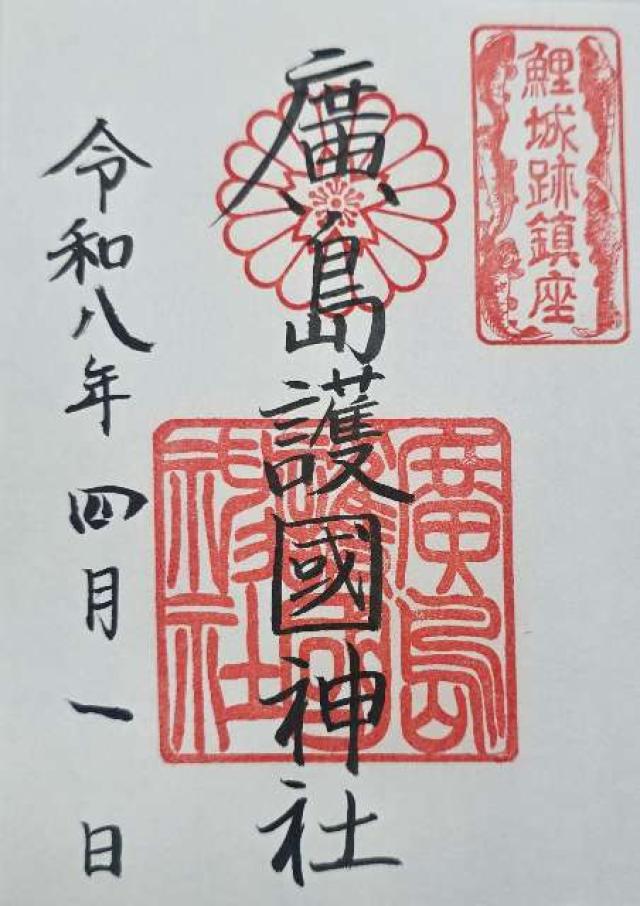 鯉城跡鎮座
廣島護國神社
廣島
護國
神社
令和八年四月一日